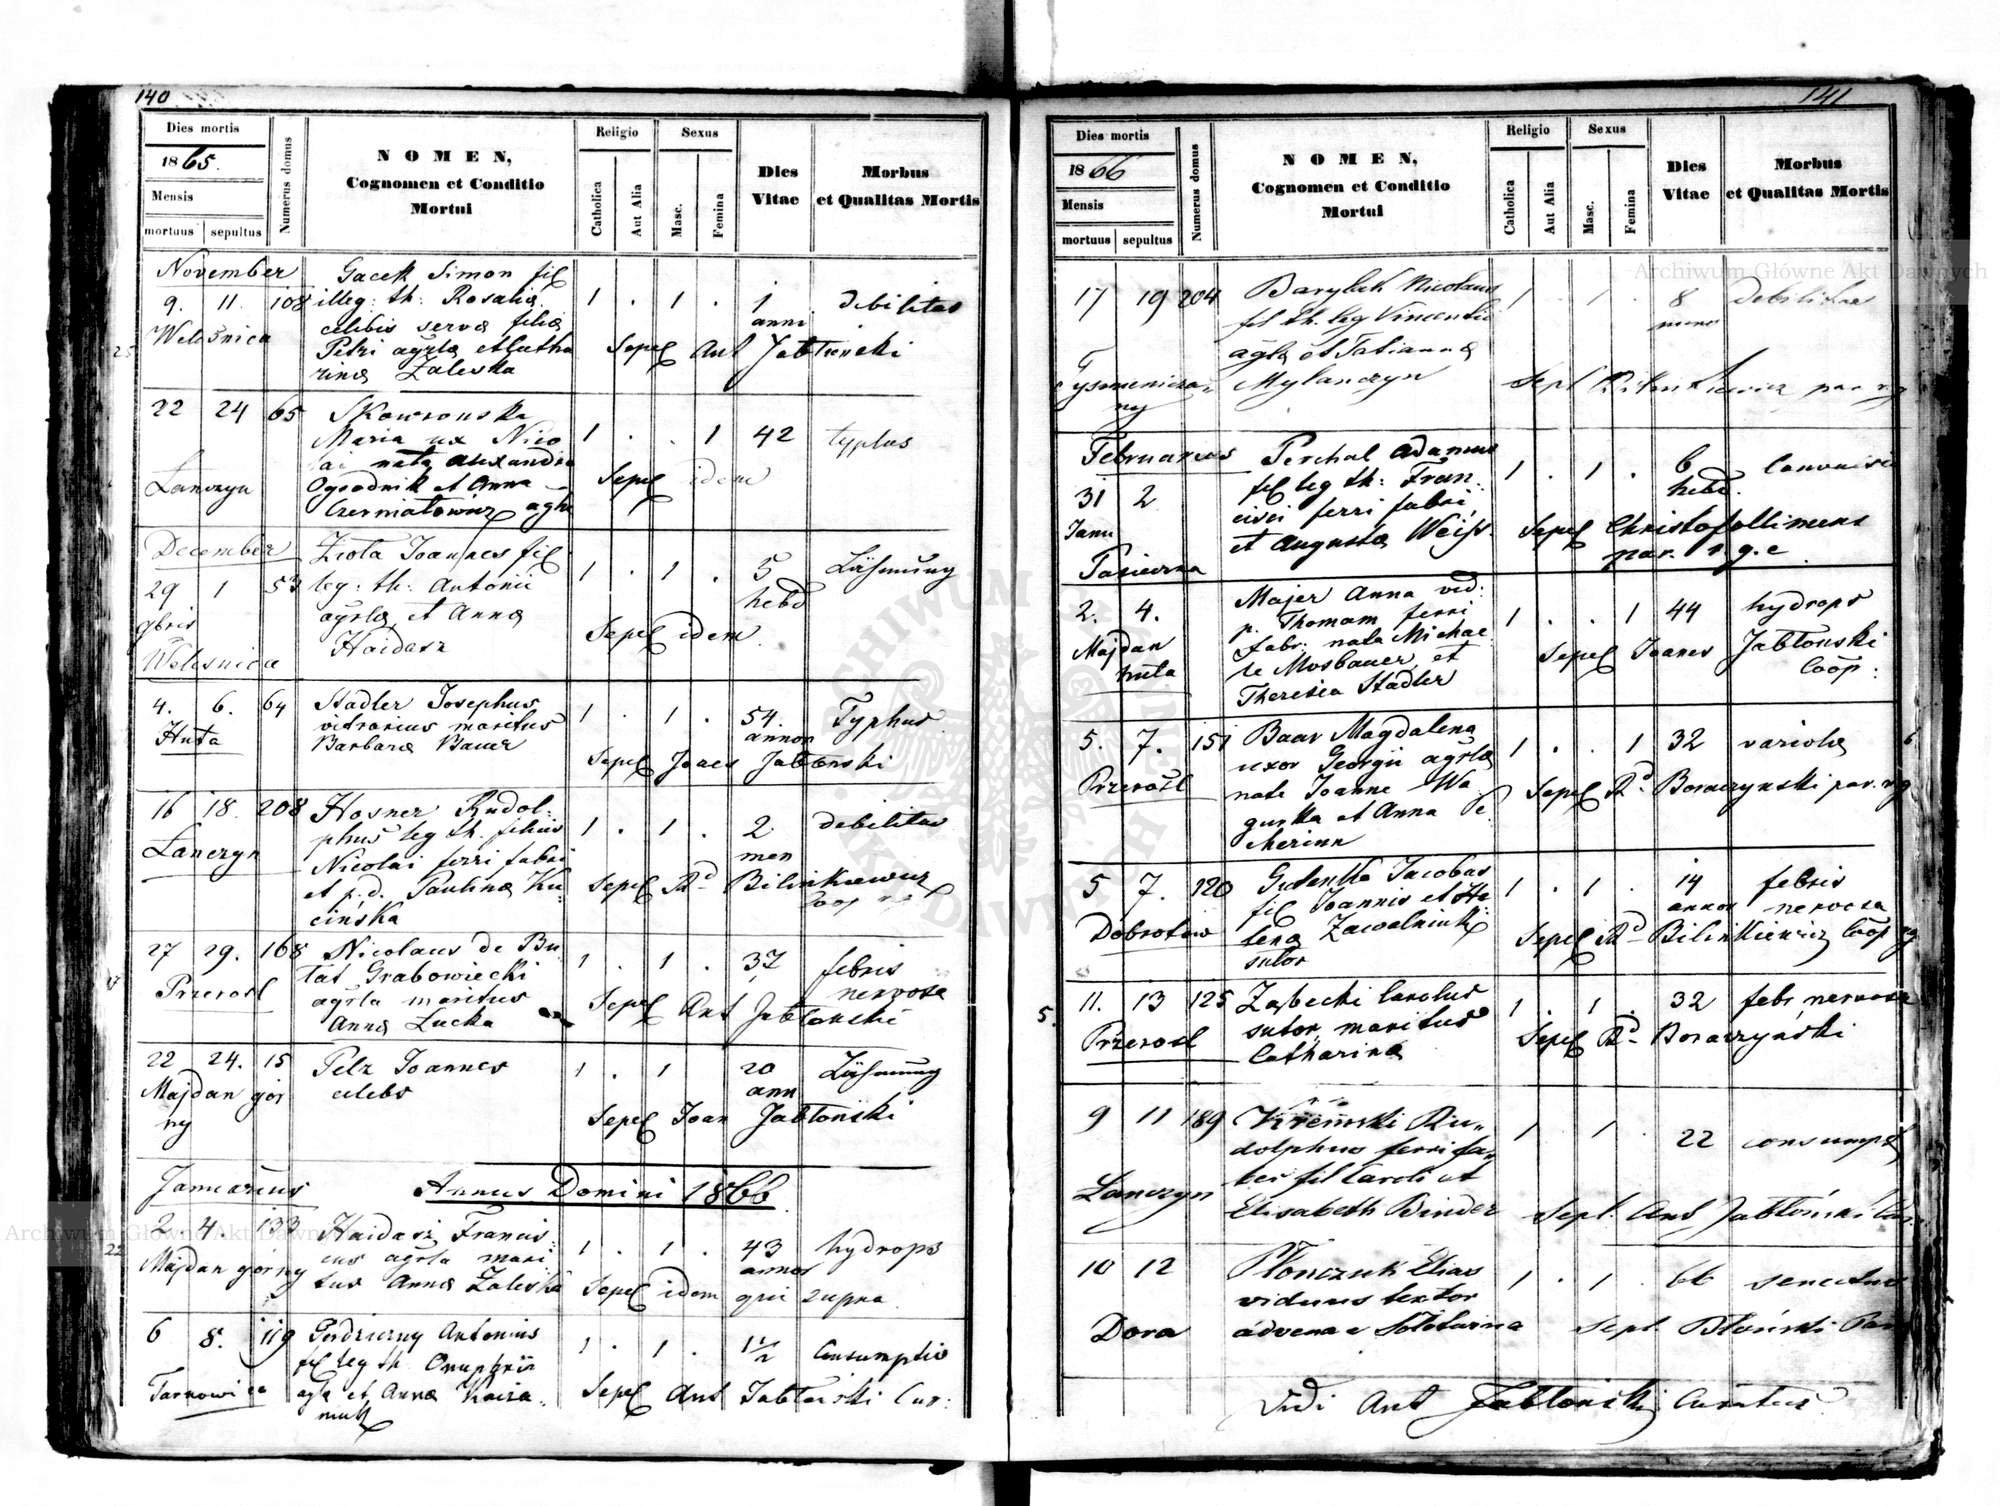 140
Dies mortis
1865.
Mensis
mortuus sepultus
Numerus domus
NOMEN,
Cognomen et Conditio
Mortui
Religio
Catholica
Aut Alia
Sexus
Masc.
Femina
Dies
Vitae
Morbus
et Qualitas Mortis
November
9. 11. 108 Gacek Simon fil
illeg: th: Rosalia 1 . 1 . 1 debilitas
celibis serva filia anni
Welesnica Petri agrlæ et Catha
rinæ Zaleska Sepel Ant Jabłonski
22 24 65 Skowronska
Maria ux Nico 1 . . 1 42 typhus
lai nata Alexandro
Lanczyn Ogrodnik et Anna Sepel idem
Czerniatowicz agla
December
29 1 53 Zrota Joannes fil
leg: th: Antonii 1 . 1 . 5 Lähmung
9bris agrlæ et Annæ hebd
Welesnica Haidasz Sepel idem
4. 6. 64 Stadler Josephus
Huta vitrarius maritus 1 . 1 . 54. Typhus
Barbaræ Bauer annor
Sepel Joaes Jabłonski
16 18. 208 Hosner Rudol-
phus leg th. filius 1 . 1 . 2 debilitas
Lanczyn Nicolai ferri fabri men
et p.d. Paulinæ Ku Sepel Rd Bilinkiewicz
cinska Coop
27 29. 168 Nicolaus de Bu
tas Grabowiecki 1 . 1 . 37 febris
Przerosl agrla maritus nervosa
Annæ Lucka Sepel Ant Jabłonski
22 24. 15 Pelz Joannes
Majdan gor celebs 1 . 1 20 Lähmung
ny ann
Sepel Joan Jabłonski
Januarius Annus Domini 1866
2 4 133 Haidasz Francis
cus agrla mari 1 . 1 . 43 hydrops
Majdan górny tus Annæ Zaleska annos
Sepel idem qui supra
6 8. 119 Antonius
fil leg th Onuphrii 1 . 1 . 1½ Consumptio
Tarnowica agla et Annæ
Sepel Ant Jabłonski Cur:
141
Dies mortis
1866
Mensis
mortuus sepultus
Numerus domus
NOMEN,
Cognomen et Conditio
Mortui
Religio
Catholica
Aut Alia
Sexus
Masc.
Femina
Dies
Vitae
Morbus
et Qualitas Mortis
17 19 204 Nicolaus 1 . 1 . 8 debilitas
fil th. leg Vincentii
agla et Tatianna
Tysmeniczany Mylanczyn Sepel Bilinkiewicz par rg
Februarius Perchal Adamus
31 2 fil leg th: Fran- 1 . 1 . 6
cisci ferri fabri hebd.
Janu et Augusta Weiss. Sepel
par. r.g.c
2. 4. Majer Anna vid:
p. Thomam ferri 1 . . 1 44 hydrops
Majdan fabr. nata Michae
huta le Mosbauer et Sepel Joanes Jabłonski
Theresia Stadler Coop:
5. 7. 151 Baar Magdalena
uxor Georgii agrlæ 1 . . 1 32 variola
Przerośl nate Joanne Wa
gurka et Anna Pe Sepel Rd Boraczynski par. rg
cherinn
5 7. 120 Gutenka Jacobus
fil Joannis et He 1 . 1 . 14 febris
Dobrotow lenæ Zawalniuk annor nervosa
sutor Sepel Rd Bilinkiewicz Coop rg
11. 13 125 Ząbecki Carolus 1 . 1 . 32 febr nervosa
sutor maritus
Przerosl Catharinæ Sepel Rd Boraczyński
9 11 189 Kremski Ru-
dolphus ferri fa- 1 . 1 . 22 consumpt
ber fil Caroli et
Lanczyn Elisabeth Binder Sepel. Ant Jabłoński Cur.
10 12 Płonczuk Elias 1 . 1 . 66 senectus
viduus textor
Dora advena e Solotwina Sepel. Błoński Par
Vidi Ant Jabłonski Curatus
Archiwum Główne Akt Dawnych
Archiwum Główne Akt Dawnych